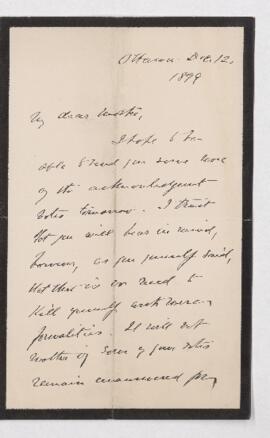 Ottawa Dec. 12,
1899
My dear Mother,
I hope to be
able to send you some more
of the acknowledgment
notes tomorrow. I trust
that you will bear in mind,
however, as you yourself said,
that there is no need to
kill yourself with mere
formalities. It will not
matter if some of your notes
remain unanswered for